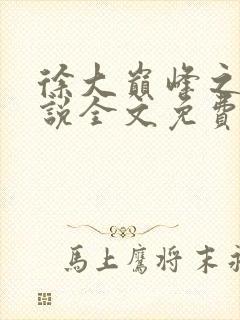 徐大巔峰之
說全文免費
馬上鷹将末